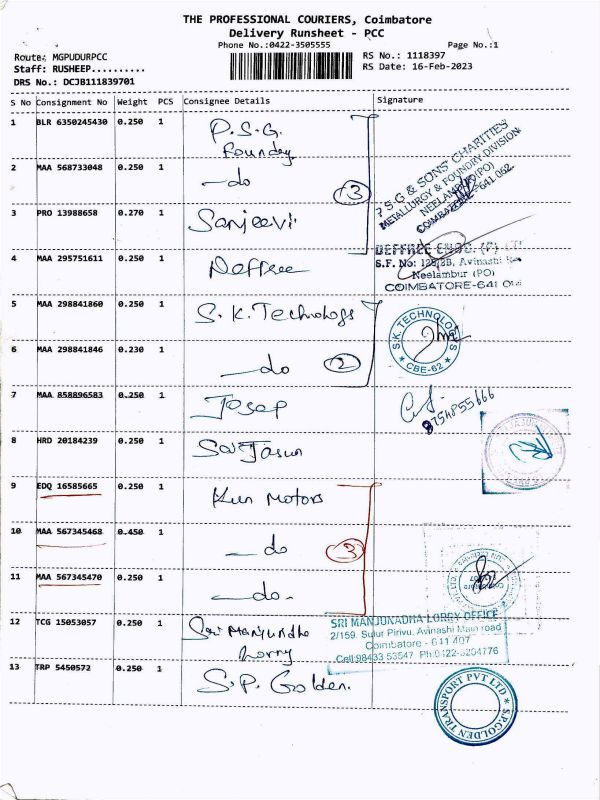 THE PROFESSIONAL COURIERS, Coimbatore
Delivery Runsheet - PCC
Phone No.:0422-3505555
Page No.:1
Route: MGPUDURPCC
RS No.: 1118397
Staff: RUSHEEP..........
RS Date: 16-Feb-2023
DRS No.: DCJB111839701
S No Consignment No Weight PCS Consignee Details Signature
1 BLR 6350245430 0.250 1 P.S.G. Foundry
2 MAA 568733048 0.250 1 - do
3
3 PRO 13988658 0.270 1 Sanjeevi
P S G & SONS' CHARITIES
METALLURGY & FOUNDRY DIVISION
NEELAMBUR (PO)
COIMBATORE-641 062
4 MAA 295751611 0.250 1 Deffree
DEFFREE ENGG. (P) LTD
S.F. No: Avinashi
Neelambur (PO)
COIMBATORE-641
5 MAA 298841860 0.250 1 S.K. Technology
S.K. TECHNOLOGIES
* CBE-62 *
6 MAA 298841846 0.230 1 - do
2
7 MAA 858896583 0.250 1 Josep
8 HRD 20184239 0.250 1 Sai
9 EDQ 16585665 0.250 1 Kun Motors
10 MAA 567345468 0.450 1 - do
3
11 MAA 567345470 0.250 1 - do -
12 TCG 15053057 0.250 1 Sri Manjundha Lorry
SRI MANJUNADHA LORRY OFFICE
2/159, Sulur Pirivu, Avinashi Main road
Coimbatore - 641 407
Cell:98433 53547 Ph:0422-3204776
13 TRP 5450572 0.250 1 S.P. Golden.
S.P.GOLDEN TRANSPORT PVT LTD